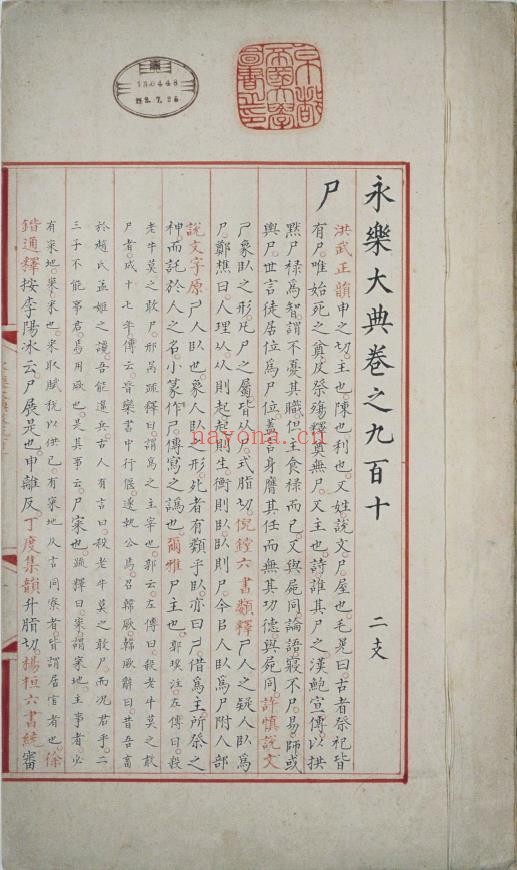 京都
帝國大學
圖書之印
130448
nayona.cn
永樂大典卷之九百十　二支
尸
洪武正韻申之切。主也。陳也。利也。又姓。說文。尸。屋也。毛晃曰。古者祭祀皆
有尸。唯始死之奠。及祭殤。釋奠無尸。又主也。詩誰其尸之。漢鮑宣傳。以拱
黙尸祿爲智。謂不憂其職。但主食祿而已。又與屍同。論語寢不尸。易師或
輿尸。世言徒居位爲尸位。蓋言身膺其任而無其功德。與屍同。許慎說文
尸象臥之形。凡尸之屬。皆从尸。式脂切。倪鏜六書類釋尸人之疑人臥爲
尸。鄭樵曰。人理从。从則起。起則生。衡則臥。臥則尸。今㠯人臥爲尸附人部
說文字原尸人臥也。象人臥之形。死者有類乎臥。亦曰尸。借爲主。所祭之
神而託於人之名。小篆作尸。傳寫之譌也。爾雅尸主也。郭璞注。左傳曰。殺
老牛莫之敢尸。邢昺疏釋曰。謂爲之主宰也。郭云。左傳曰。殺老牛莫之敢
尸者。成十七年傳云。晉欒書中行偃。遂執公焉。召韓厥。韓厥辭曰。昔吾畜
於趙氏。孟姬之讒。吾能違兵。古人有言曰。殺老牛莫之敢尸。而况君乎。二
三子不能事君。焉用厥也。是其事云。尸寀也。疏釋曰。寀謂寀地。主事者必
有寀地。寀。采也。采取賦稅以供己。有寀地。及古同寮者。皆謂居官者也。徐
鍇通釋按李陽冰云。尸展是也。申離反。丁度集韻升脂切。楊桓六書統審